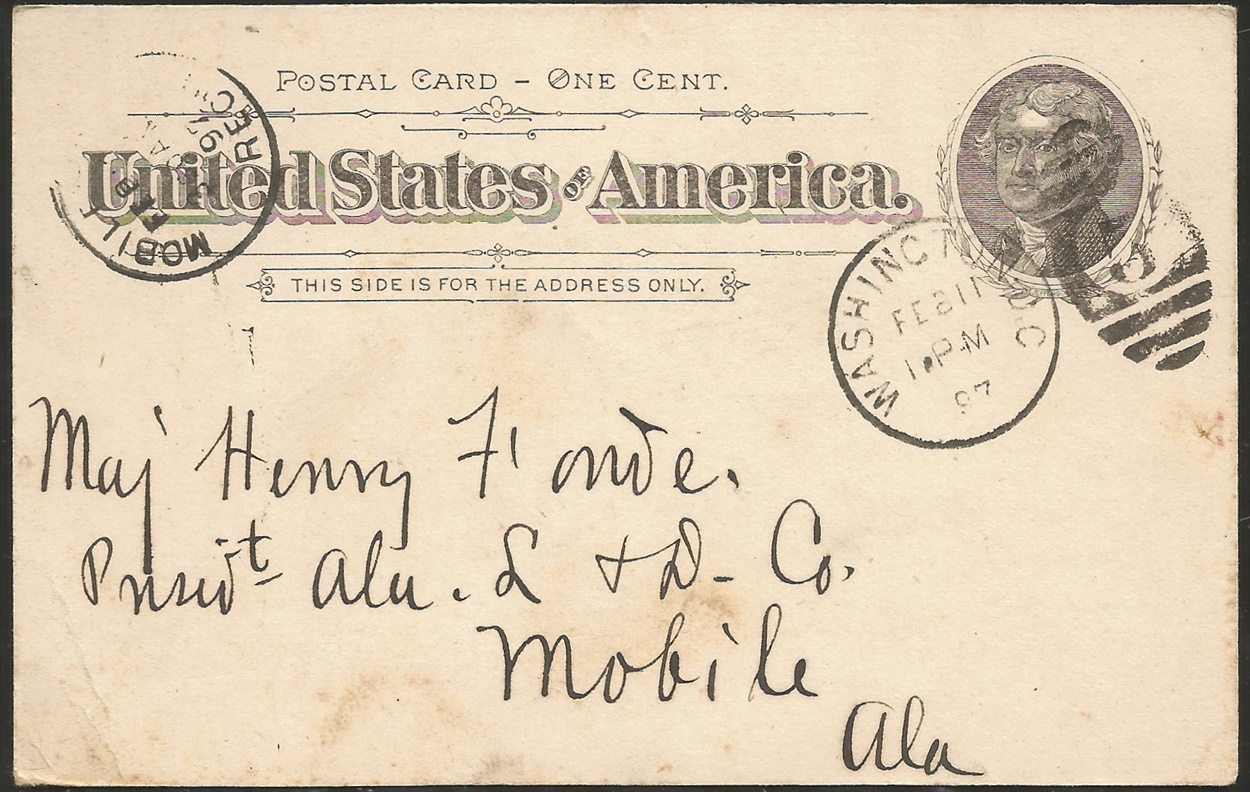 POSTAL CARD – ONE CENT.
United States OF America.
THIS SIDE IS FOR THE ADDRESS ONLY.
MOBIL
REC'D
WASHINGTON, D.C.
FEB 11
1 PM
97
2
Maj Henry Fonde.
Presid't Ala. L & D. Co.
Mobile
Ala